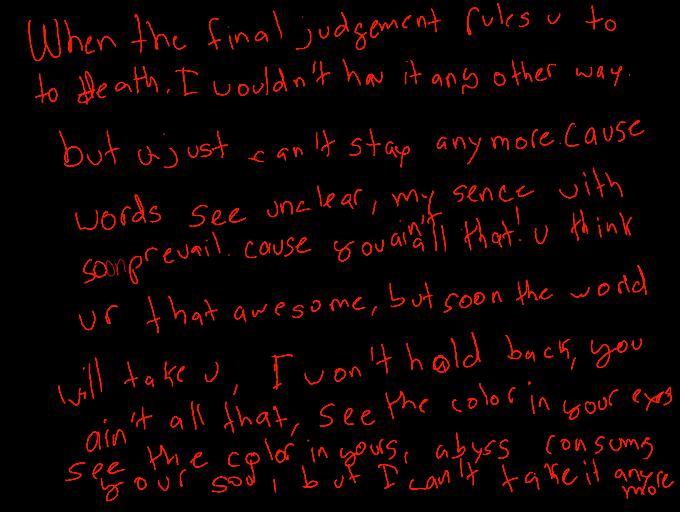 When the final judgement rules u to
to death. I wouldn't hav it any other way.
but u just can't stay anymore. Cause
words see unclear, my sence with
soon prevail. cause you ain't all that! u think
ur that awesome, but soon the world
will take u, I won't hold back, you
ain't all that, see the color in your eyes
see the color in yours, abyss consums
your soul, but I can't take it any
more